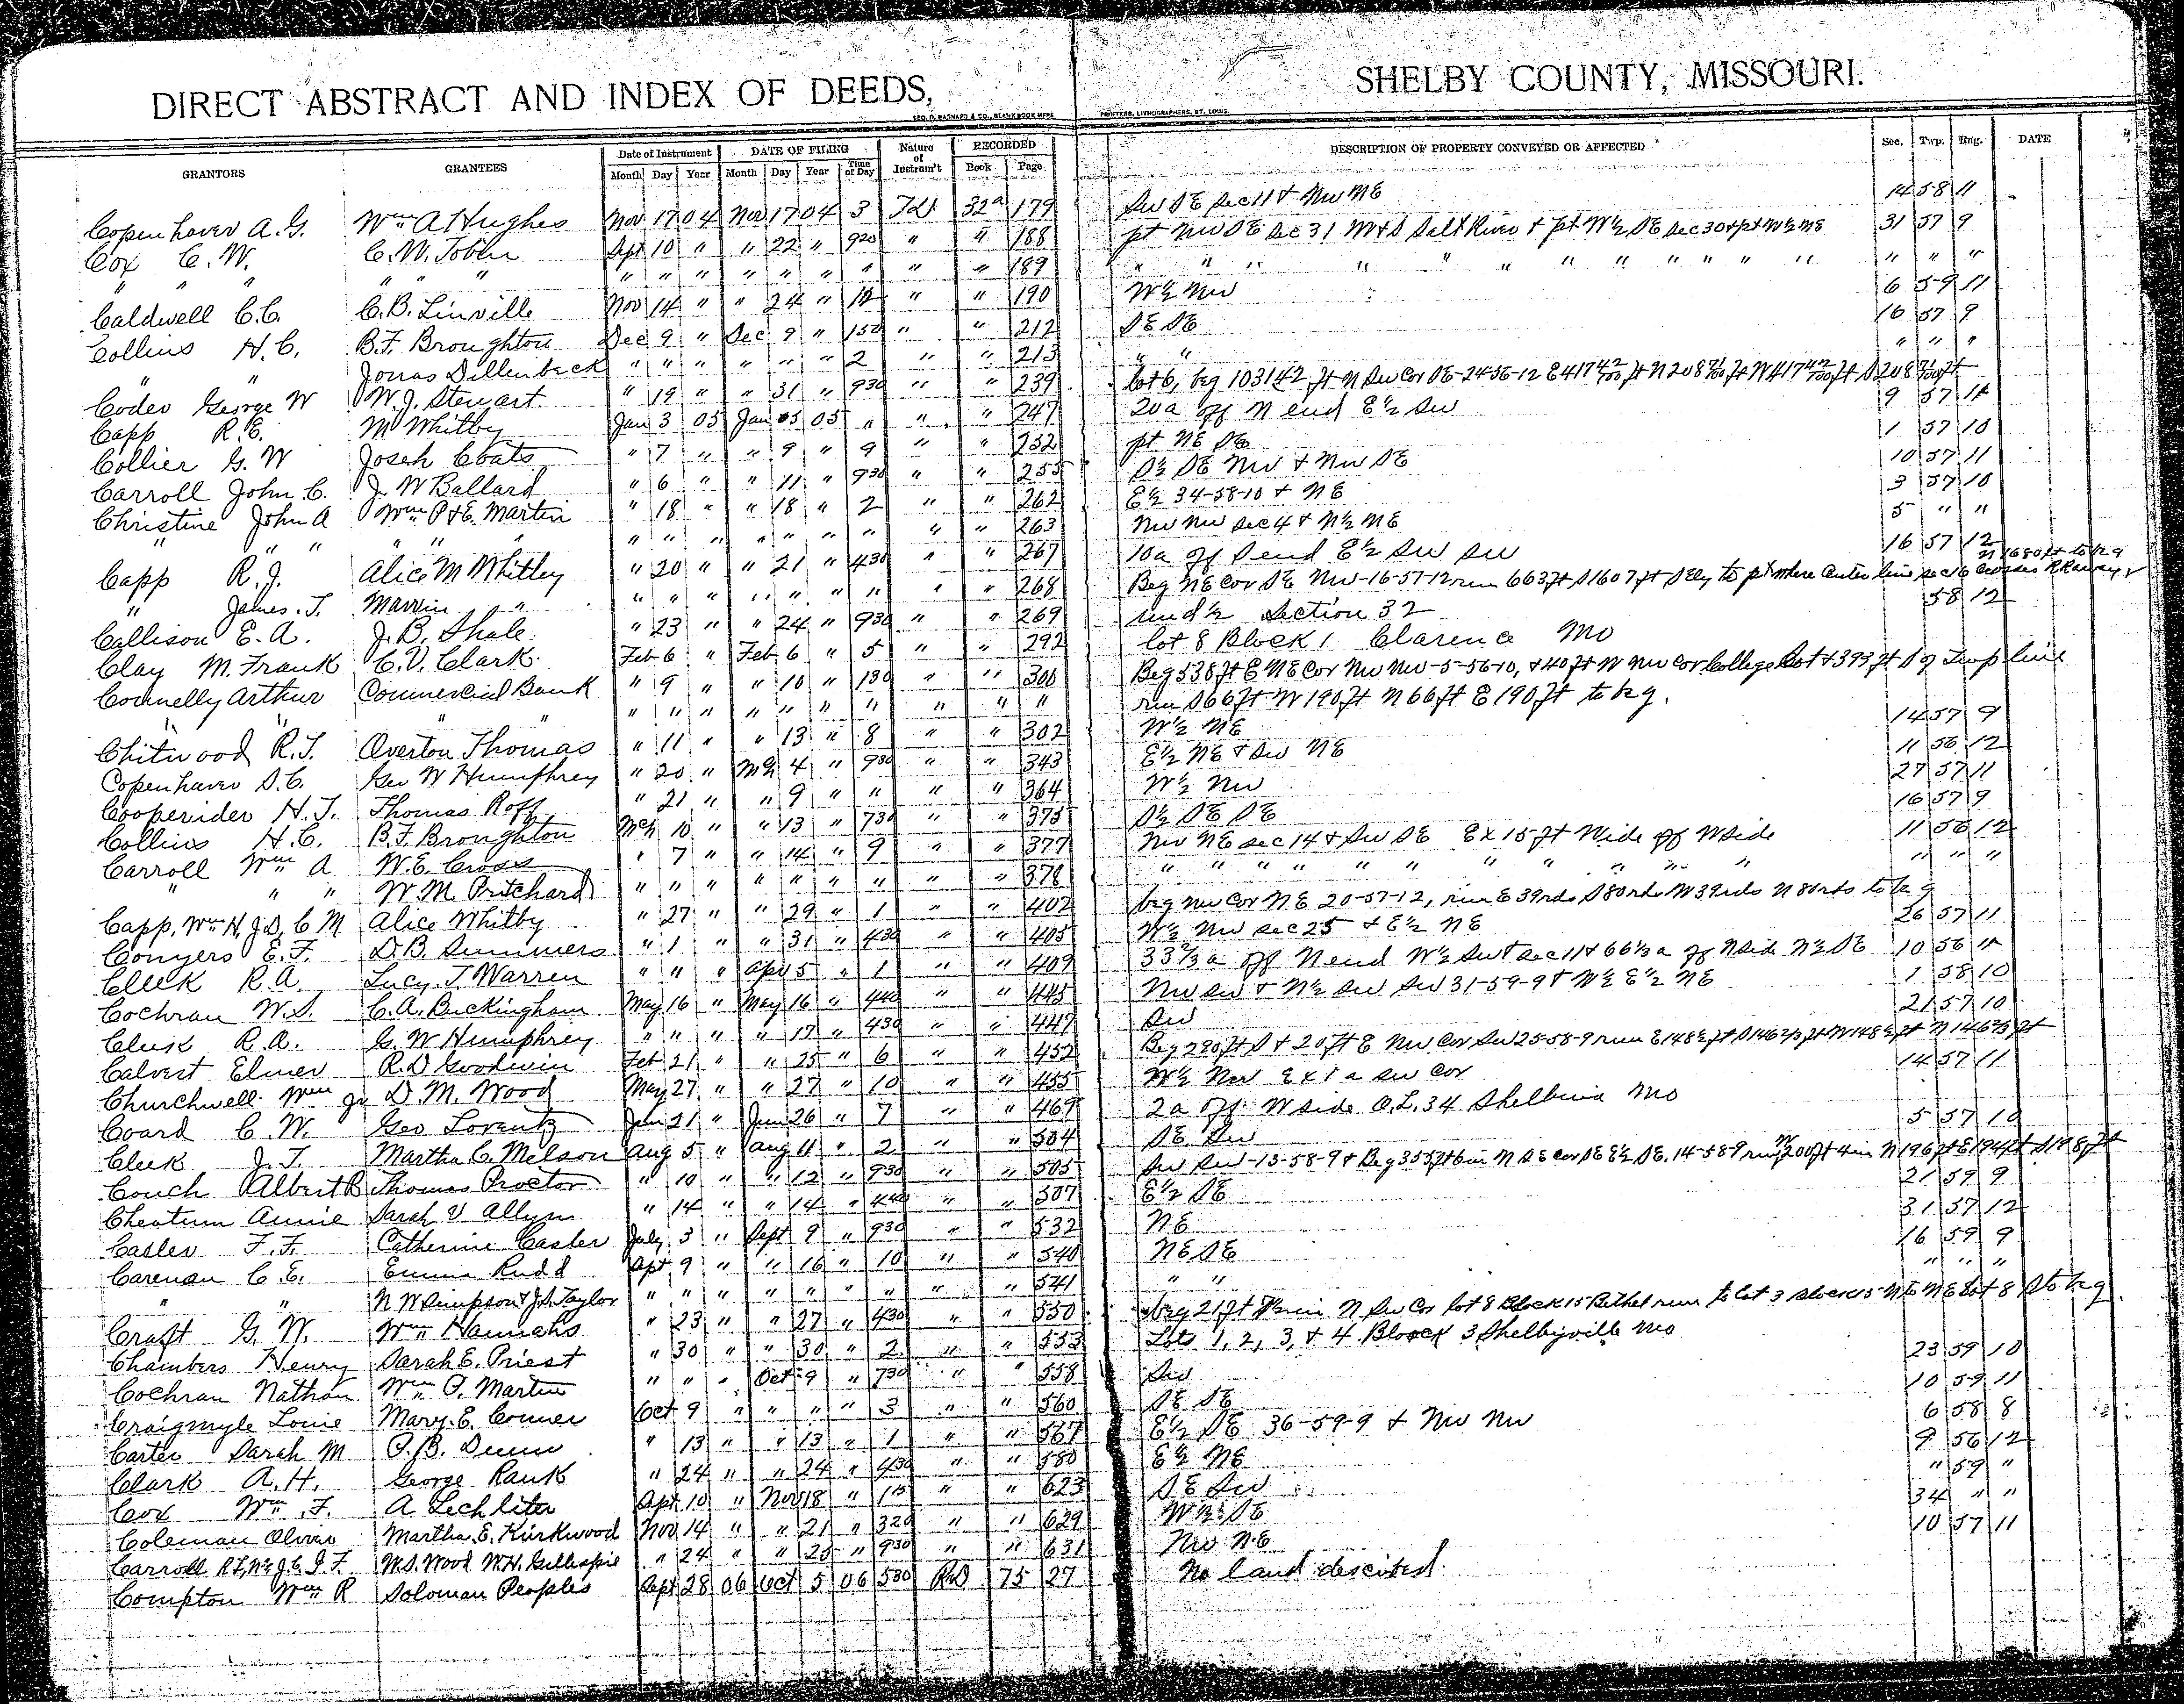 DIRECT ABSTRACT AND INDEX OF DEEDS, SHELBY COUNTY, MISSOURI.
GEO. D. BARNARD & CO., BLANK BOOK MFRS PRINTERS, LITHOGRAPHERS, ST. LOUIS.
GRANTORS GRANTEES Date of Instrument DATE OF FILING Nature of Instrum't RECORDED DESCRIPTION OF PROPERTY CONVEYED OR AFFECTED Sec. Twp. Rng. DATE
Month Day Year Month Day Year Time of Day Book Page
Copenhaver A. G. Wm A Hughes Nov 17 04 Nov 17 04 3 32a 179 Sw SE Sec 11 & Nw NE 14 58 11
Cox C. W. C. W. Tobin Sept 10 " " 22 " 920 " " 188 pt Nw SE Sec 31 Salt River & pt W½ SE Sec 30 & pt W½ NE 31 57 9
" " " " " " " " " " " " " " " 189 " " " " " " " " " " " " " " "
Caldwell C. C. C. B. Linville Nov 14 " " 24 " " " 190 W½ Nw 6 59 11
Collins H. C. B. F. Broughton Dec 9 " Dec 9 " 150 " " 212 SE SE 16 57 9
" " Jonas Dillenbeck " " " " " " 2 " " 213 " " " " "
Coder George W W. J. Stewart " 19 " " 31 " 930 " " 239 Lot 6, beg 1031 42 ft N Sw Cor SE-24-56-12 E 417 42/100 ft N 208 71/100 ft W 417 42/100 ft S 208 71/100 ft
Capp R. E. M Whitby Jan 3 05 Jan 5 05 " " " 247 20a off N end E½ Sw 9 57 12
Collier G. W Joseh Coats " 7 " " 9 " 9 " " 252 pt NE SE 1 57 10
Carroll John C. J. W Ballard " 6 " " 11 " 930 " " 255 S½ SE Nw & Nw SE 10 57 11
Christine John A Wm P & E. Martin " 18 " " 18 " 2 " " 262 E½ 34-58-10 & NE 3 57 10
" " " " " " " " " " " " " " 263 Nw Nw Sec 4 & N½ NE 5 " "
Capp R. J. Alice M Whitley " 20 " " 21 " 430 " " 267 10a off S end E½ Sw Sw 16 57 12
" James. T. Marvin " " " " " " " " " " 268 Beg NE Cor SE Nw-16-57-12 run 663 ft S 1607 ft SEly to pt where Center line Sec 16 crosses RRaway N 1680 ft to beg
Callison E. A. J. B. Shale " 23 " " 24 " 930 " " 269 und ½ Section 32 58 12
Clay M. Frank C. V. Clark Feb 6 " Feb 6 " 5 " " 292 lot 8 Block 1 Clarence Mo
Connelly Arthur Commercial Bank " 9 " " 10 " 130 " " 300 Beg 538 ft E NE Cor Nw Nw-5-56-10, & 40 ft W Nw Cor College Lot & 393 ft S of Twp line
" " " " " " " " " " " " " " run S 66 ft W 190 ft N 66 ft E 190 ft to beg.
Chitwood R. T. Overton Thomas " 11 " " 13 " 8 " " 302 W½ NE 14 57 9
Copenhaver S. C. Geo W Humphrey " 20 " Mch 4 " 930 " " 343 E½ NE & Sw NE 11 56 12
Cooperider H. T. Thomas Roff " 21 " " 9 " " " " 364 W½ Nw 27 57 11
Collins H. C. B. F. Broughton Mch 10 " " 13 " 730 " " 375 S½ SE SE 16 57 9
Carroll Wm A W. E. Cross " 7 " " 14 " 9 " " 377 Nw NE Sec 14 & Sw SE Ex 15 ft Wide off W Side 11 56 12
" " " W. M. Pritchard " " " " " " " " " 378 " " " " " " " " " " " " "
Capp, Wm H, J. S, C M Alice Whitby " 27 " " 29 " 1 " " 402 beg Nw Cor NE 20-57-12, run E 39 rds S 80 rds W 39 rds N 80 rds to beg
Conyers E. F. D. B. Summers " 1 " " 31 " 430 " " 405 W½ Nw Sec 25 & E½ NE 26 57 11
Cleek R. A. Lucy J. Warren " " " Apr 5 " 1 " " 409 33⅓ a off N end W½ Sw Sec 11 & 66⅔ a off N side N½ SE 10 56 11
Cochran W. S. C. A. Buckingham May 16 " May 16 " 440 " " 445 Nw Sw & N½ Sw Sw 31-59-9 & W½ E½ NE 1 58 10
Cleek R. A. G. W Humphrey " " " " 17 " 430 " " 447 Sw 21 57 10
Calvert Elmer R. D Goodwin Feb 21 " " 25 " 6 " " 452 Beg 290 ft S & 20 ft E Nw Cor Sw 25-58-9 run E 148½ ft S 146⅔ ft W 148½ ft N 146⅔ ft
Churchwell Wm Jr D. M. Wood May 27 " " 27 " 10 " " 455 W½ Nw Ex 1 a Sw Cor 14 57 11
Coard C. W. Geo Lorentz Jun 21 " Jun 26 " 7 " " 469 2a off W side O. L. 34 Shelbina Mo
Cleek J. T. Martha C. Melson Aug 5 " Aug 11 " 2 " " 504 SE Sw 5 57 10
Couch Albert B Thomas Proctor " 10 " " 12 " 930 " " 505 Sw Sw-13-58-9 & Beg 355 ft 6 in N SE Cor SE E½ SE. 14-58-9 run W 200 ft 4 in N 196 ft E 194 ft S 198 ft
Cheatum Annie Sarah V Allyn " 14 " " 14 " 440 " " 507 E½ SE 21 59 9
Casler F. F. Catherine Casler July 3 " Sept 9 " 930 " " 532 NE 31 57 12
Carenan C. E. Emma Rudd Sept 9 " " 16 " 10 " " 540 NE SE 16 59 9
" " N W Simpson & J. S. Taylor " " " " " " " " " 541 " " " " "
Craft G. W. Wm Hannahs " 23 " " 27 " 430 " " 550 beg 21 ft N Sw Cor Lot 8 Block 15 Bethel run to Lot 3 Block 15 N to NE Lot 8 S to beg
Chambers Henry Sarah E. Priest " 30 " " 30 " 2 " " 553 Lots 1, 2, 3, & 4 Block 3 Shelbyville Mo
Cochran Nathan Wm P. Martin " " " Oct 9 " 730 " " 558 Sw 23 59 10
Craigmyle Louie Mary. E. Conner Oct 9 " " " " 3 " " 560 SE SE 10 59 11
Carter Sarah M P. B. Dunn " 13 " " 13 " 1 " " 567 E½ SE 36-59-9 & Nw Nw 6 58 8
Clark A. H. George Rank " 24 " " 24 " 430 " " 580 E½ NE 9 56 12
Cox Wm F. A Lechliter Sept 10 " Nov 18 " 115 " " 623 SE Sw " 59 "
Coleman Oliver Martha. E. Kirkwood Nov 14 " " 21 " 320 " " 629 W½ SE 34 " "
Carroll R. F, Wm J. C. I. F. W. S. Wood W. H. Gillespie " 24 " " 25 " 930 " " 631 Nw NE 10 57 11
Compton Wm R Soloman Peoples Sept 28 06 Oct 5 06 530 RD 75 27 No land described.